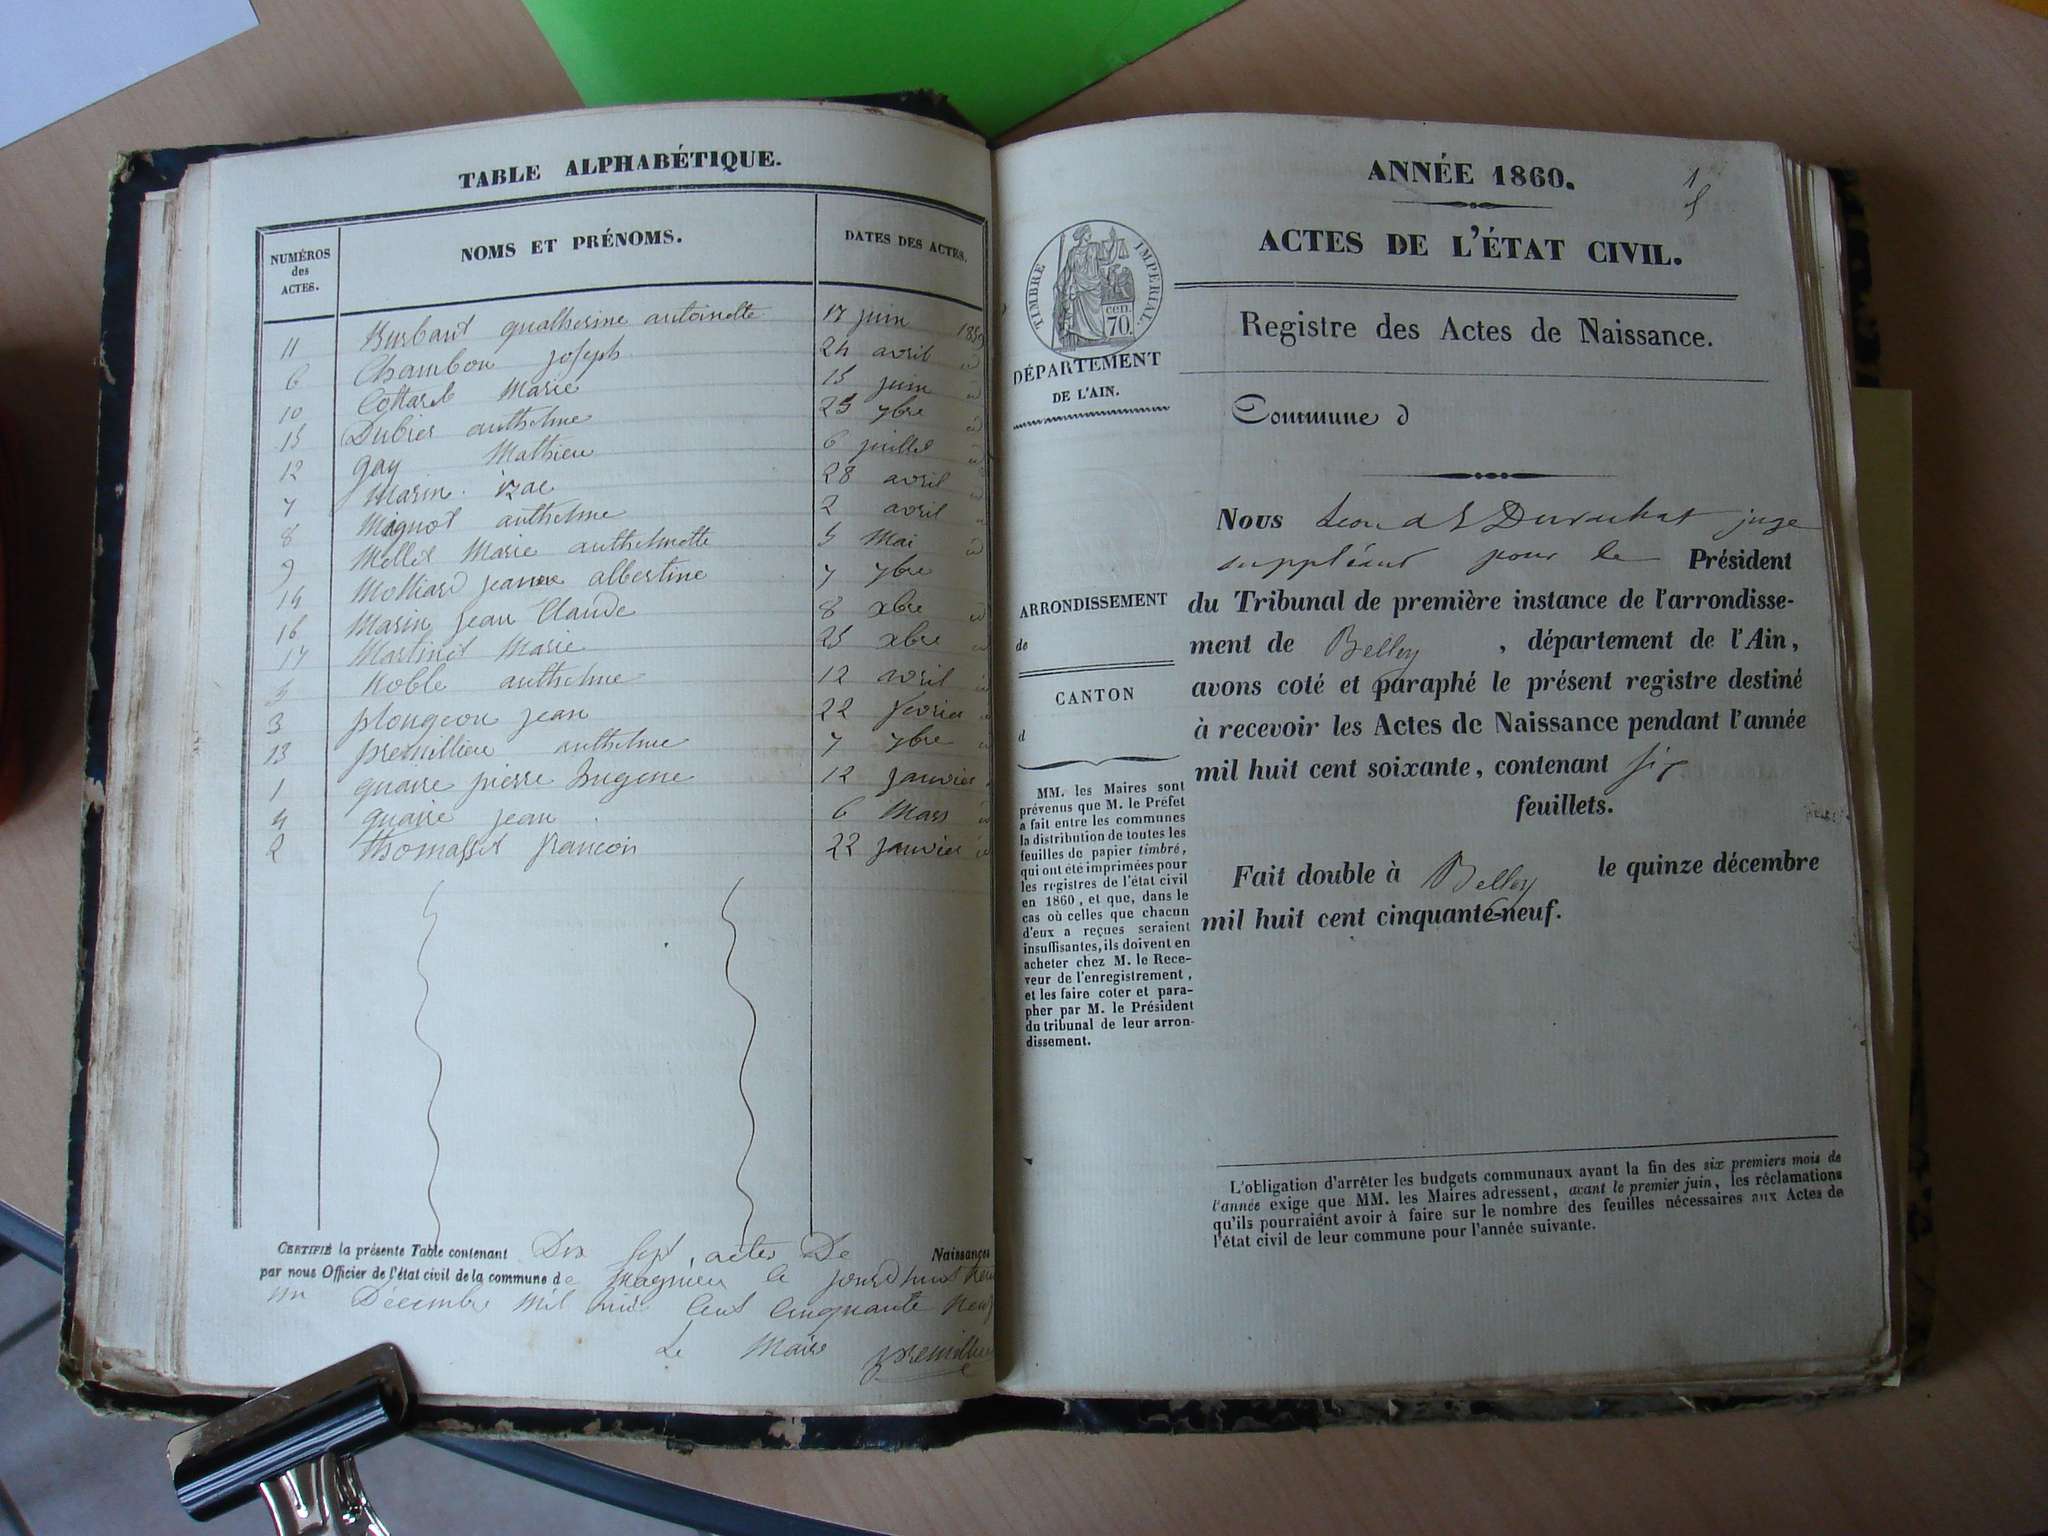 TABLE ALPHABÉTIQUE.
NUMÉROS des ACTES. NOMS ET PRÉNOMS. DATES DES ACTES.
11 Burbant quatherine antoinette 17 juin 1859
6 Chambon joseph 24 avril id
10 Cottarel Marie 15 juin id
15 Dubier anthelme 25 7bre id
12 gay Mathieu 6 juillet id
7 Marin izac 28 avril id
8 Mignot anthelme 2 avril
9 Mollet Marie anthelmette 5 Mai id
14 Molliard jeanne albertine 7 7bre
16 Marin jean Claude 8 xbre id
17 Martinet Marie 25 xbre id
5 Noble anthelme 12 avril id
3 plongeon jean 22 fevrier id
13 premillieu anthelme 7 7bre id
1 quaire pierre Eugene 12 janvier
4 quaire jean 6 Mars id
2 thomasset françois 22 janvier id
CERTIFIÉ la présente Table contenant Dix Sept actes De Naissances
par nous Officier de l'état civil de la commune de Magnieu le jourdhui trente
un Décembre Mil huit Cent Cinquante Neuf
Le Maire premillieu
ANNÉE 1860.
1
ACTES DE L'ÉTAT CIVIL.
TIMBRE IMPÉRIAL.
cen.
70.
Registre des Actes de Naissance.
DÉPARTEMENT
DE L'AIN.
Commune d
Nous juge
suppléant pour le Président
du Tribunal de première instance de l'arrondisse-
ment de Belley , département de l'Ain,
avons coté et paraphé le présent registre destiné
à recevoir les Actes de Naissance pendant l'année
mil huit cent soixante, contenant six
feuillets.
Fait double à Belley le quinze décembre
mil huit cent cinquante-neuf.
ARRONDISSEMENT
de
CANTON
d
MM. les Maires sont
prévenus que M. le Préfet
a fait entre les communes
la distribution de toutes les
feuilles de papier timbré,
qui ont été imprimées pour
les registres de l'état civil
en 1860, et que, dans le
cas où celles que chacun
d'eux a reçues seraient
insuffisantes, ils doivent en
acheter chez M. le Rece-
veur de l'enregistrement,
et les faire coter et para-
pher par M. le Président
du tribunal de leur arron-
dissement.
L'obligation d'arrêter les budgets communaux avant la fin des six premiers mois de
l'année exige que MM. les Maires adressent, avant le premier juin, les réclamations
qu'ils pourraient avoir à faire sur le nombre des feuilles nécessaires aux Actes de
l'état civil de leur commune pour l'année suivante.